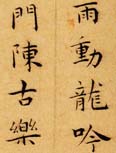 雨動龍吟
門陳古樂